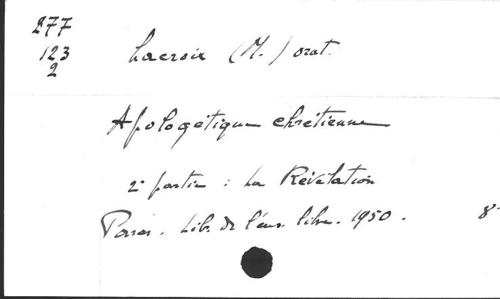 277
123
2
Lacroix (M.) orat.
Apologétique chrétienne
2e partie : La Révélation
Paris. Lib. de l'ens. libre. 1950.
8°